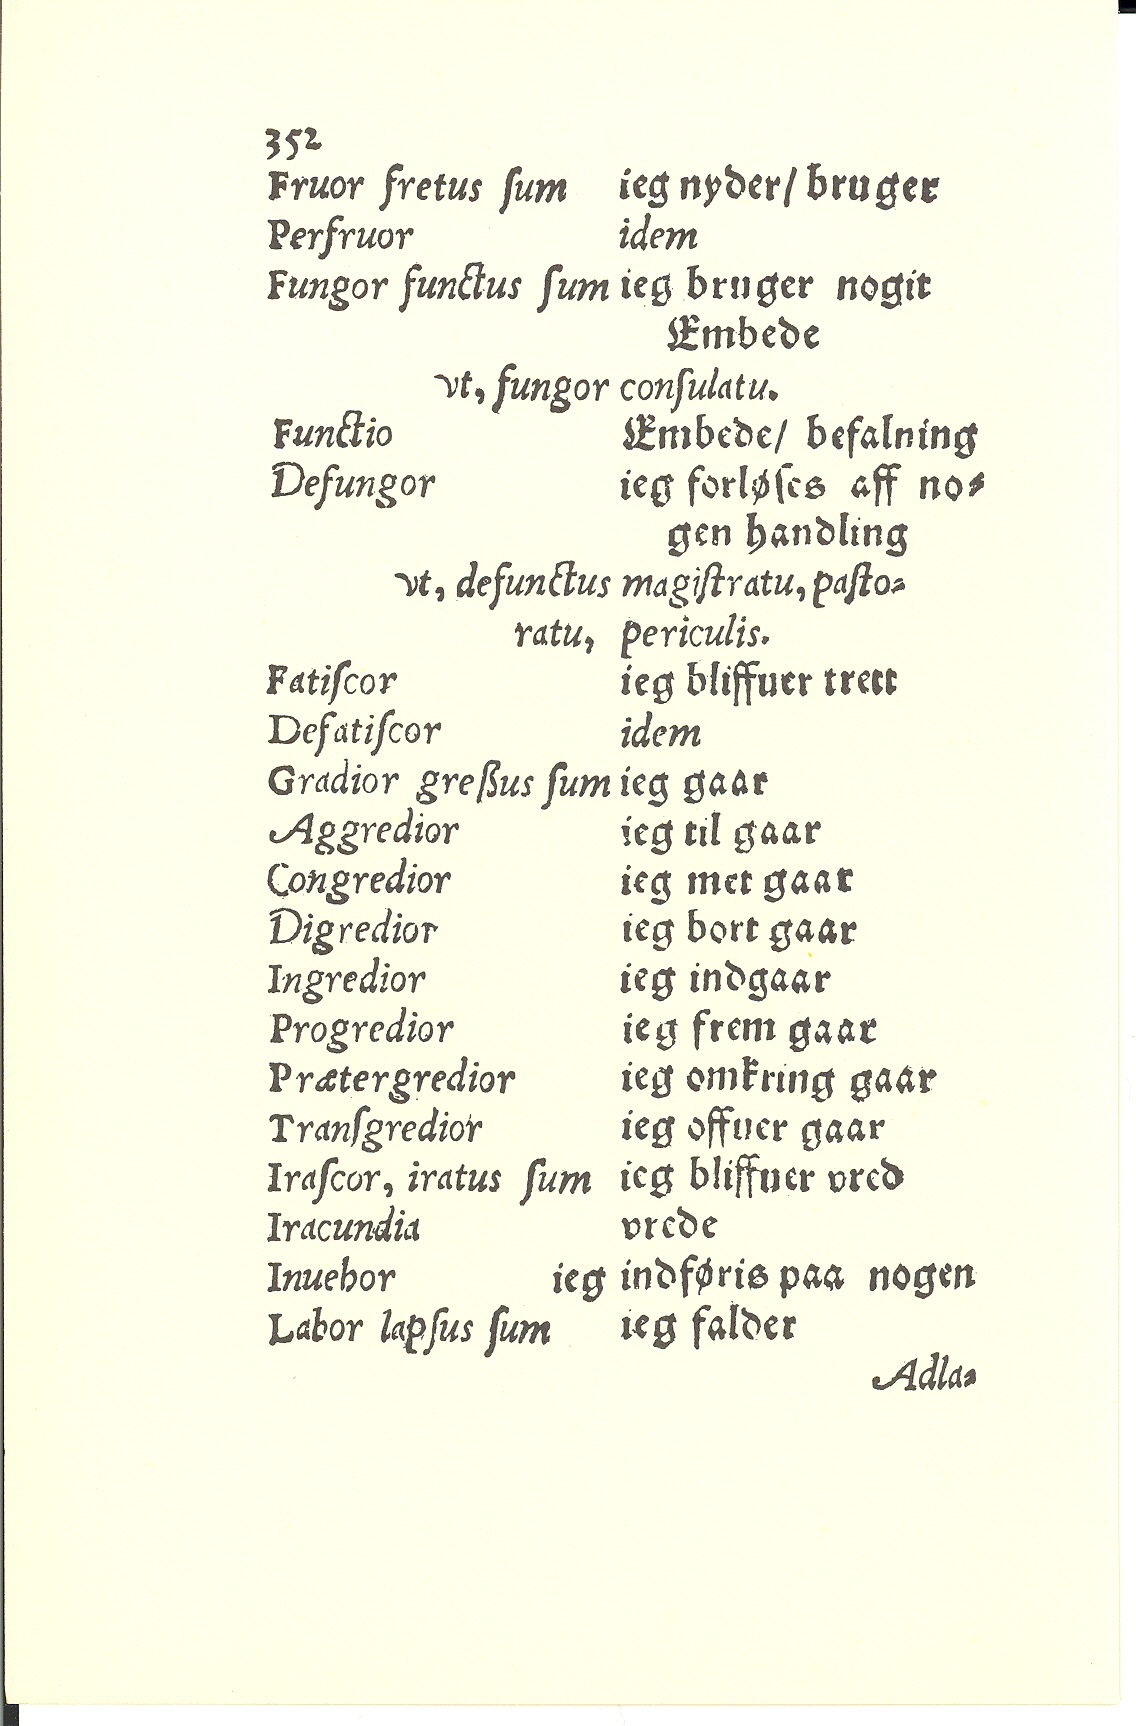 352
Fruor fretus ſum ieg nyder/ bruger
Perfruor idem
Fungor functus ſum ieg bruger nogit
Embede
vt, fungor conſulatu.
Functio Embede/ befalning
Defungor ieg forløſes aff no⸗
gen handling
vt, defunctus magiſtratu, paſto⸗
ratu, periculis.
Fatiſcor ieg bliffuer trett
Defatiſcor idem
Gradior greßus ſum ieg gaar
Aggredior ieg til gaar
Congredior ieg met gaar
Digredior ieg bort gaar
Ingredior ieg indgaar
Progredior ieg frem gaar
Prætergredior ieg omkring gaar
Tranſgredior ieg offuer gaar
Iraſcor, iratus ſum ieg bliffuer vred
Iracundia vrede
Inuehor ieg indføris paa nogen
Labor lapſus ſum ieg falder
Adla⸗